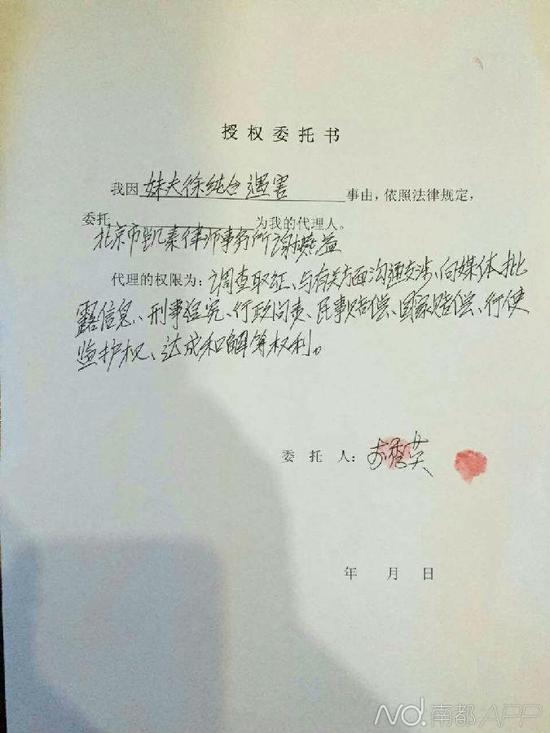 授权委托书
我因 妹夫徐纯合遇害 事由，依照法律规定，
委托 北京市凯泰律师事务所谢燕益 为我的代理人。
代理的权限为：调查取证、与有关方面沟通交涉、向媒体批
露信息、刑事追究、行政问责、民事赔偿、国家赔偿、行使
监护权、达成和解等权利。
委 托 人：李秀英
年 月 日
ND.南都APP